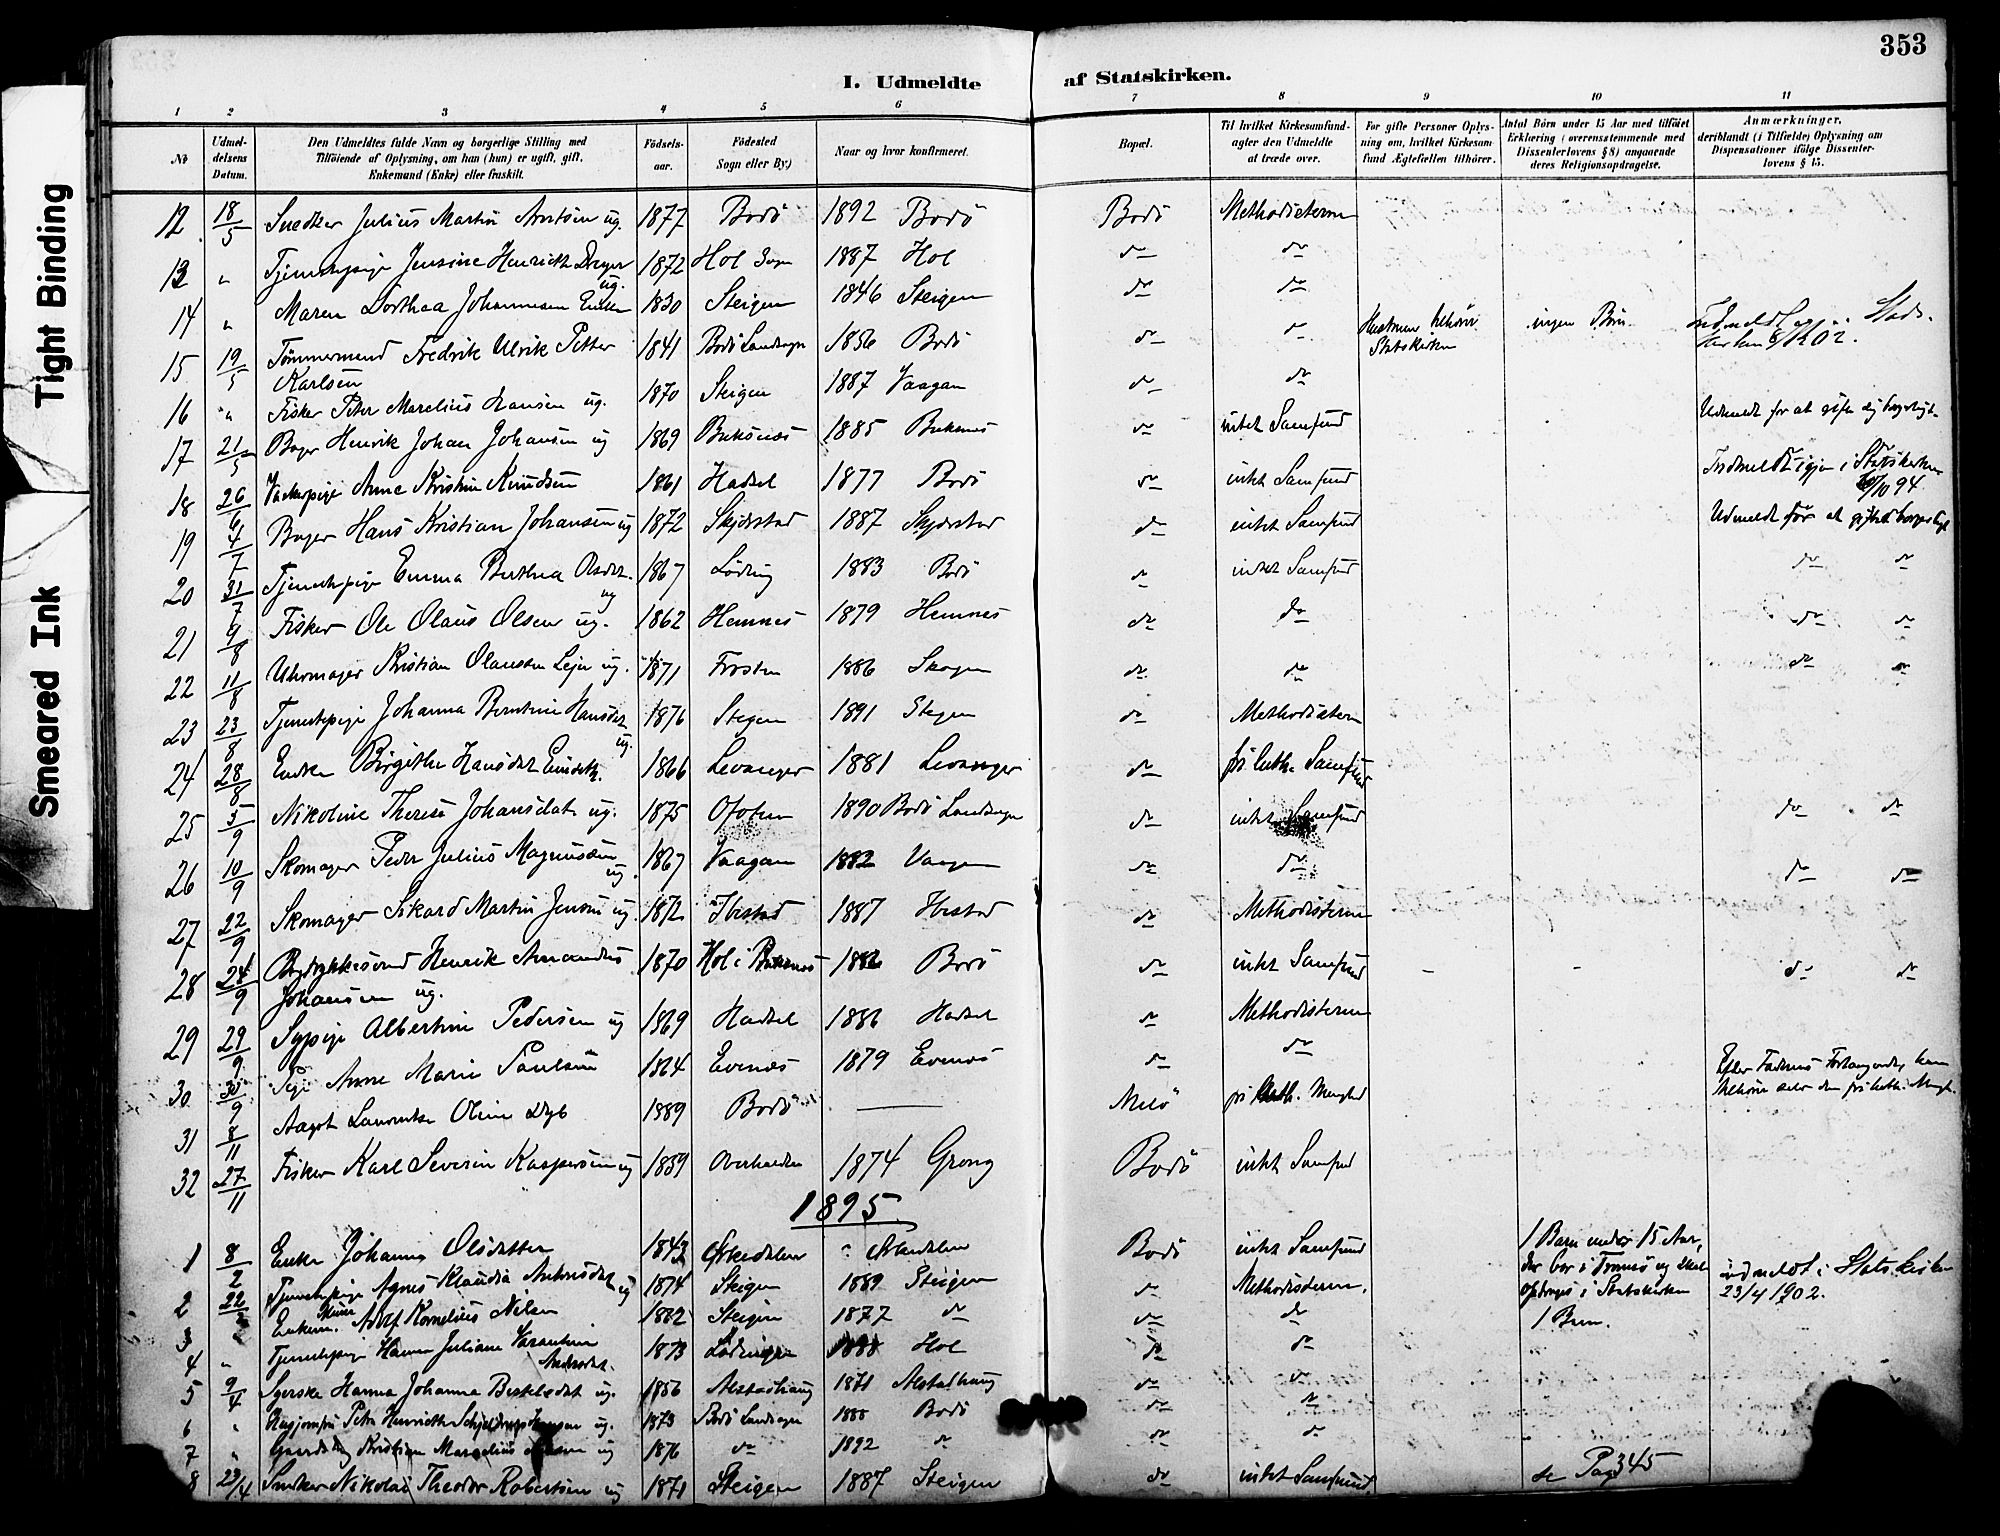 353
I. Udmeldte af Statskirken.
Tight Binding
Smeared Ink
1 2 3 4 5 6 7 8 9 10 11
No
Udmeldelsens Datum.
Den Udmeldtes fulde Navn og borgerlige Stilling med Tilføiende af Oplysning, om han (hun) er ugift, gift, Enkemand (Enke) eller fraskilt.
Fødselsaar.
Fødested Sogn eller By.)
Naar og hvor konfirmeret.
Bopæl.
Til hvilket Kirkesamfund agter den Udmeldte at træde over.
For gifte Personer Oplysning om, hvilket Kirkesamfund Ægtefællen tilhører.
Antal Børn under 15 Aar med tilføiet Erklæring (overensstemmende med Dissenterlovens § 8) angaaende deres Religionsopdragelse.
Anmærkninger, deriblandt (i Tilfælde) Oplysning om Dispensationer ifølge Dissenterlovens § 15.
12 18/5 Snedker Julius Martin Arntsen ug. 1877 Bodø 1892 Bodø Bodø Methodisterne
13 " Tjenestepige Jensine Henrikke Dreyer ug. 1872 Hol Sogn 1887 Hol do do
14 " Maren Dorthea Johannesen Enke 1830 Steigen 1846 Steigen do do
15 19/5 Tømmermand Fredrik Ulrik Petter Karlsen 1841 Bodø Landsogn 1856 Bodø do do Hustruen tilhører Statskirken ingen Børn Indmeldt Statskirken 8/12 02.
16 " Fisker Peter Marelius Hansen ug. 1870 Steigen 1887 Vaagan do do
17 21/5 Bager Henrik Johan Johansen ug 1869 Buksnæs 1885 Buksnes do intet Samfund Udmeldt for at gifte sig borgerligt.
18 26/6 Anne Kristine Knudsen 1861 Hadsel 1877 Bodø do intet Samfund Indmeldt igjen i Statskirken /10 94.
19 4/7 Bager Hans Kristian Johansen ug 1872 Skjærstad 1887 Skjerstad do intet Samfund Udmeldt for at giftes borgerligt
20 31/7 Tjenestepige Emma Berthea Olsdt. ug 1867 Løding 1883 Bodø do intet Samfund do do
21 9/8 Fisker Ole Olaus Olsen ug. 1862 Hemnes 1879 Hemnes do do do do
22 11/8 Uhrmager Kristian Olaussen Leja ug. 1871 Frosten 1886 Skogen do do do do
23 23/8 Tjenestepige Johanna Berntine Hansdt. ug. 1876 Stegen 1891 Stegen do Methodisterne
24 28/8 Enke Birgithe Hansdat 1866 Levanger 1881 Levanger do fri luth. Samfund
25 5/9 Nikoline Therese Johansdat ug. 1875 Ofoten 1890 Bodø Landsogn do intet Samfund do do
26 10/9 Skomager Peder Julius Magnussen ug. 1867 Vaagan 1882 Vaagan do do do do
27 22/9 Skomager Sikard Martin Jensen ug 1872 Ibestad 1887 Ibestad do Methodisterne
28 24/9 Henrik Amandus Johansen ug. 1870 Hol i Buksnes 1886 Bodø do intet Samfund - - do do
29 29/9 Sypige Albertine Pedersen ug 1869 Hadsel 1886 Hadsel do Methodisterne
30 30/9 Pige Anne Marie Paulsen 1864 Evenæs 1879 Evenæs do do
31 8/11 Aagot Laurentse Oline Dyb 1889 Bodø — Melø fri luth. Menighed Efter Faderens Forlangende, kun tilhører selv den fri luth. Mengh.
32 27/11 Fisker Karl Severin Kaspersen ug 1859 Overhalden 1874 Grong Bodø intet Samfund
1895
1 8/2 Enke Johanna Olsdatter 1843 Ørkedalen " Ørkedalen Bodø intet Samfund 1 Barn under 15 Aar, der bor i Tromsø og skal opdrages i Statskirken
2 22/2 Tjenestepige Agnes Klaudia Antonsdat ug 1874 Steigen 1889 Steigen do Methodisterne. indmeldt i Statskirken 23/4 1902.
3 Enkem. Adolf Kornelius Nilsen 1862 Steigen 1877 do do do 1 Barn.
4 " Tjenestepige Hanna Juliane Andersdt. 1873 Lødingen 1888 Hol do do
5 9/4 Syerske Hanna Johanna ug. 1856 Alstadhaug 1871 Alstadhaug do do
6 " Petra Henriette Schjelderup Hansen ug. 1873 Bodø Landsogn 1888 Bodø do do
7 " Kristian Marselius ug 1876 do 1892 do do do
8 23/4 Snedker Nikolai Theodor Robertsen ug 1871 Steigen 1887 Steigen do intet Samfund. se Pag 345